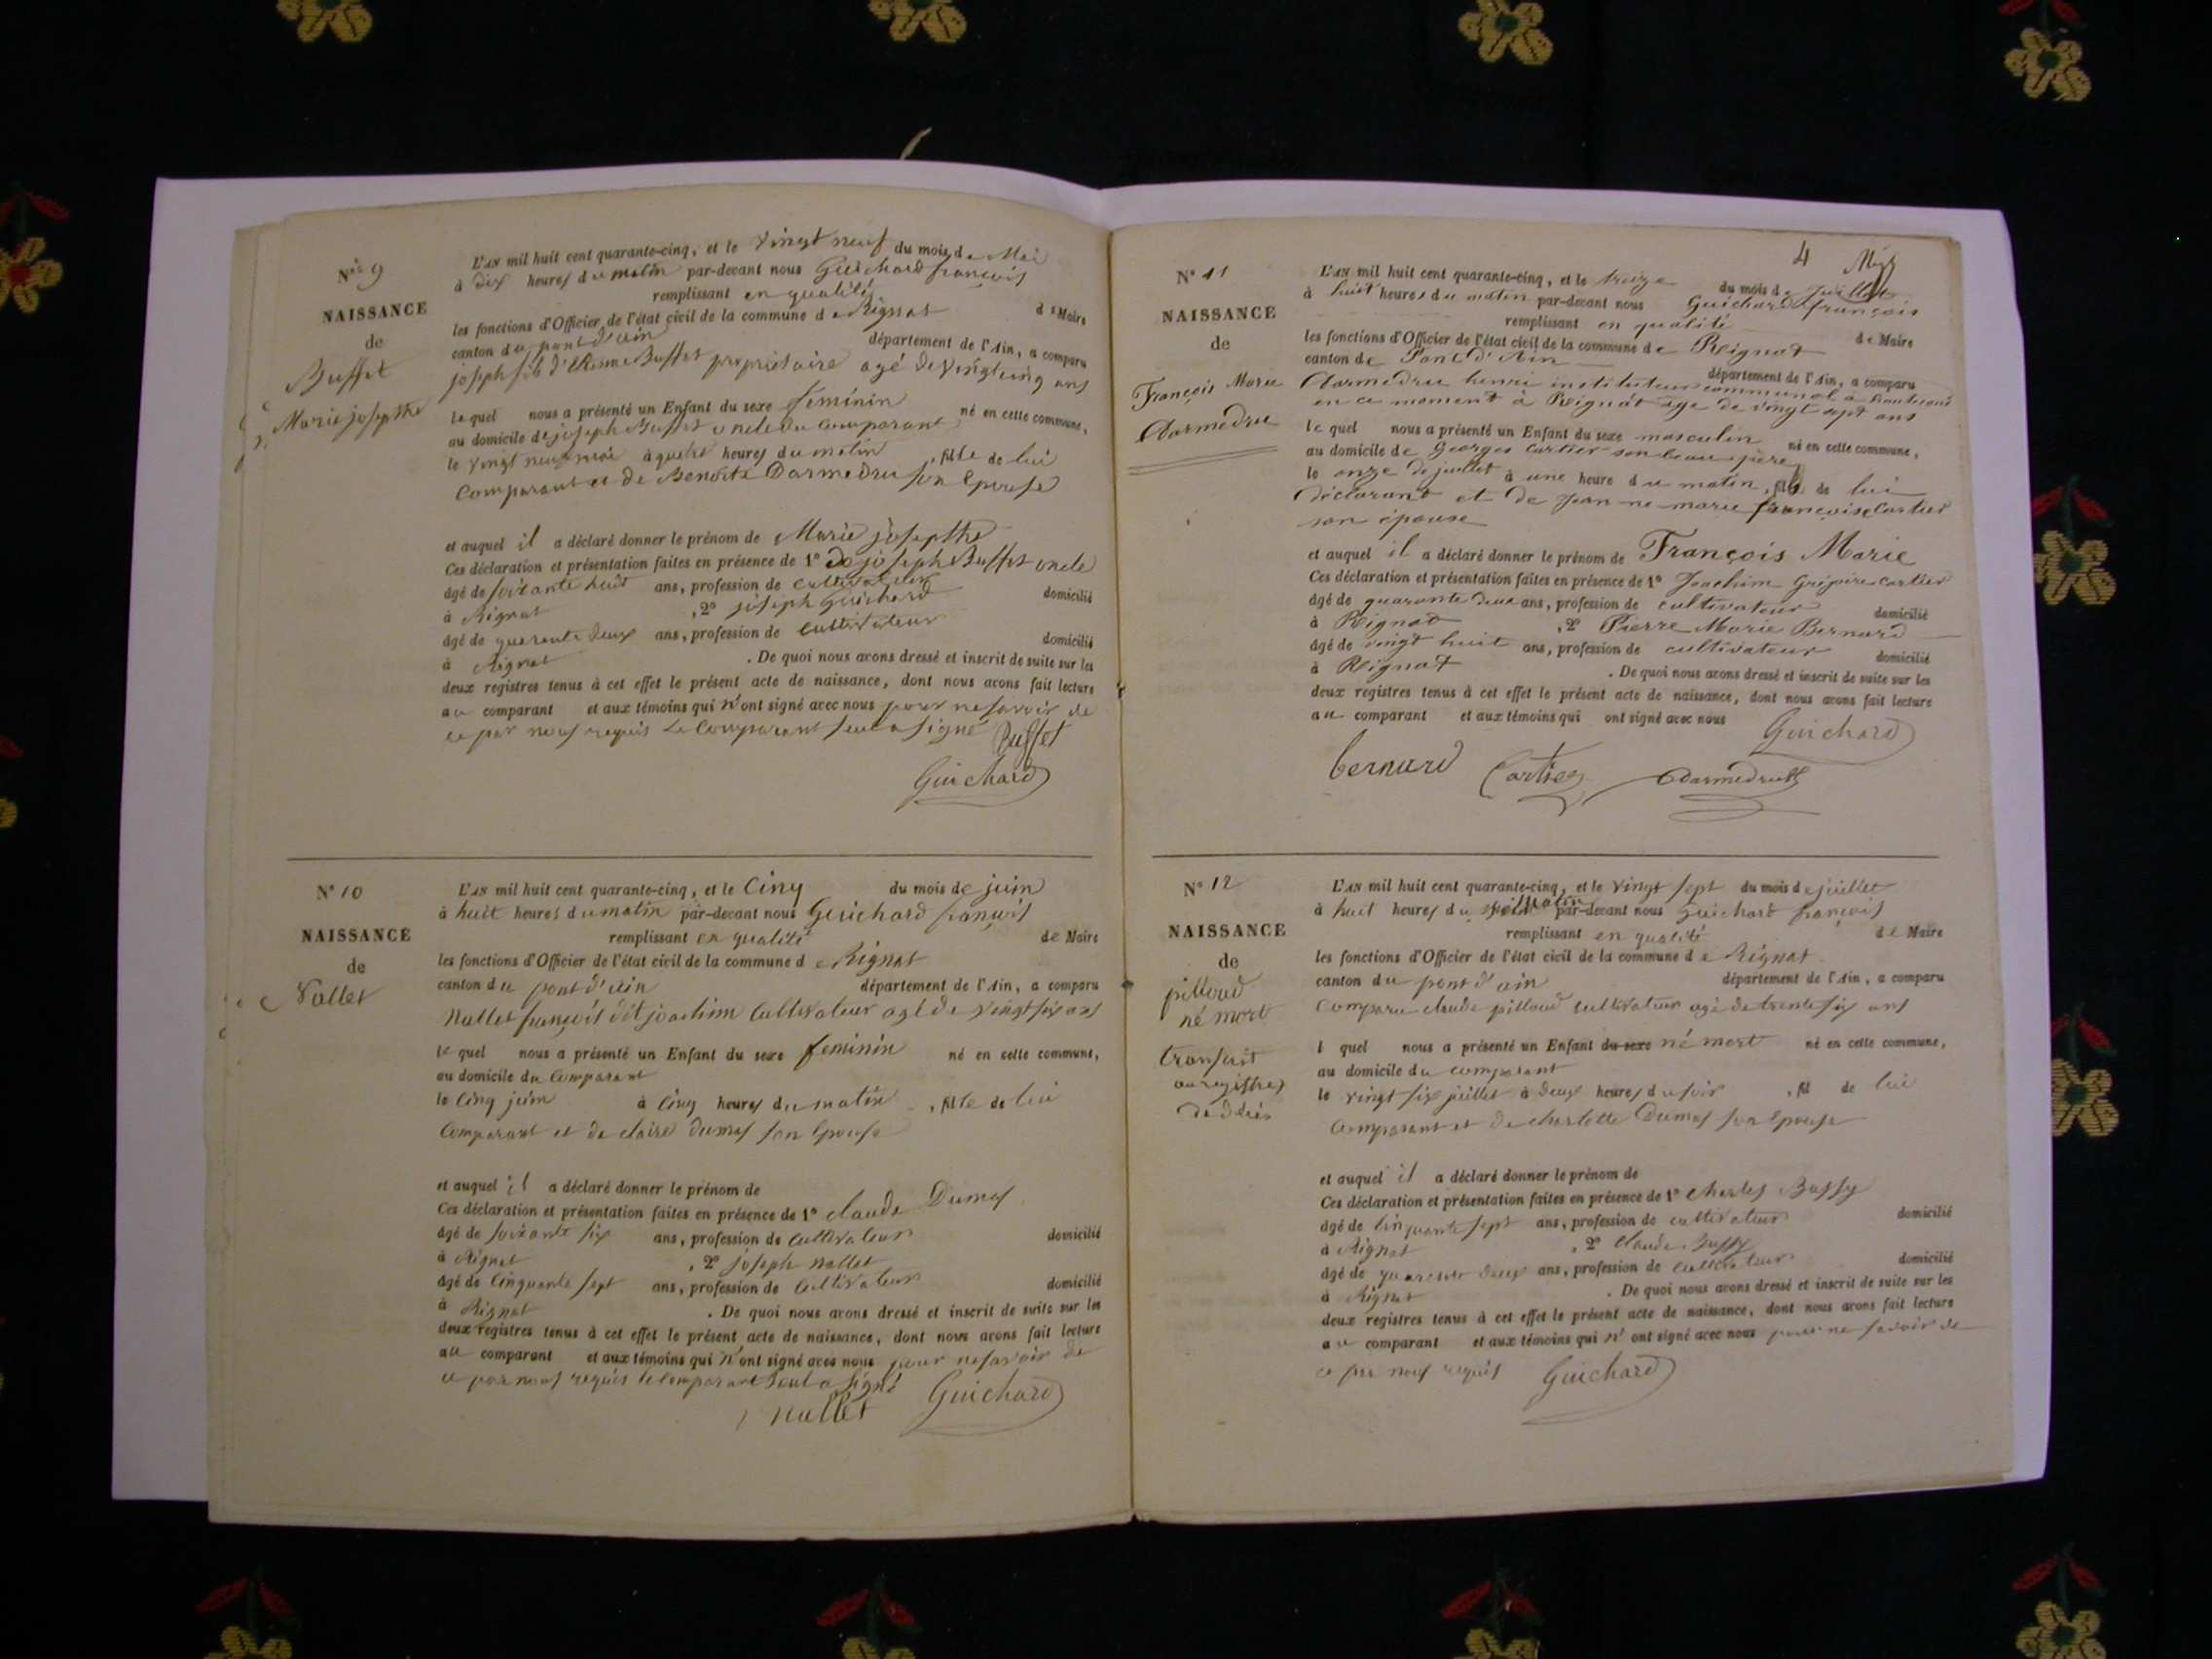 N° 9
NAISSANCE
de
Buffet
Marie josepthe
L'AN mil huit cent quarante-cinq, et le vingt neuf du mois de Mai
à dix heures du matin par-devant nous Guichard françois
remplissant en qualité de Maire
les fonctions d'Officier de l'état civil de la commune de Rignat
canton du pont d'ain département de l'Ain, a comparu
joseph fils d' Buffet propriétaire agé de vingt cinq ans
lequel nous a présenté un Enfant du sexe féminin né en cette commune,
au domicile de joseph Buffet oncle du comparant
le vingt neuf mai à quatre heures du matin, fille de lui
Comparant et de Benoite Darmedru son épouse
et auquel il a déclaré donner le prénom de Marie josepthe
Ces déclaration et présentation faites en présence de 1° De joseph Buffet oncle
âgé de soixante huit ans, profession de cultivateur domicilié
à Rignat , 2° joseph Guichard
âgé de quarante deux ans, profession de cultivateur domicilié
à Rignat . De quoi nous avons dressé et inscrit de suite sur les
deux registres tenus à cet effet le présent acte de naissance, dont nous avons fait lecture
au comparant et aux témoins qui n'ont signé avec nous pour ne savoir de
ce par nous requis Le Comparant seul a signé Buffet
Guichard
N° 10
NAISSANCE
de
Nallet
L'AN mil huit cent quarante-cinq, et le Cinq du mois de juin
à huit heures du matin par-devant nous Guichard françois
remplissant en qualité de Maire
les fonctions d'Officier de l'état civil de la commune de Rignat
canton du pont d'ain département de l'Ain, a comparu
Nallet françois dit joachim Cultivateur agé de vingt six ans
lequel nous a présenté un Enfant du sexe feminin né en cette commune,
au domicile du Comparant
le Cinq juin à Cinq heures du matin, fille de lui
Comparant et de claire Dumas son Epouse
et auquel il a déclaré donner le prénom de
Ces déclaration et présentation faites en présence de 1° claude Dumas
âgé de soixante six ans, profession de Cultivateur domicilié
à Rignat , 2° joseph nallet
âgé de Cinquante sept ans, profession de Cultivateur domicilié
à Rignat . De quoi nous avons dressé et inscrit de suite sur les
deux registres tenus à cet effet le présent acte de naissance, dont nous avons fait lecture
au comparant et aux témoins qui n'ont signé avec nous pour ne savoir de
ce par nous requis le comparant seul a signé Guichard
nallet
4
N° 11
NAISSANCE
de
François Marie
Darmedru
L'AN mil huit cent quarante-cinq, et le treize du mois de Juillet
à huit heures du matin par-devant nous Guichard françois
remplissant en qualité de Maire
les fonctions d'Officier de l'état civil de la commune de Rignat
canton de Pont d'Ain département de l'Ain, a comparu
Darmedru henri instituteur communal à
en ce moment à Rignat âgé de vingt sept ans
lequel nous a présenté un Enfant du sexe masculin né en cette commune,
au domicile de Georges Cartier son beau père
le onze de juillet à une heure du matin, fils de lui
déclarant et de Jeanne-marie françoise Cartier
son épouse
et auquel il a déclaré donner le prénom de François Marie
Ces déclaration et présentation faites en présence de 1° Joachim Grégoire Cartier
âgé de quarante deux ans, profession de cultivateur domicilié
à Rignat , 2° Pierre Marie Bernard
âgé de vingt huit ans, profession de cultivateur domicilié
à Rignat . De quoi nous avons dressé et inscrit de suite sur les
deux registres tenus à cet effet le présent acte de naissance, dont nous avons fait lecture
au comparant et aux témoins qui ont signé avec nous Guichard
bernard Cartier Darmedru
N° 12
NAISSANCE
de
pilloud
né mort
transcrit
au registres
de décès
L'AN mil huit cent quarante-cinq, et le vingt sept du mois de juillet
à huit heures du matin par-devant nous Guichard françois
remplissant en qualité de Maire
les fonctions d'Officier de l'état civil de la commune de Rignat
canton du pont d'ain département de l'Ain, a comparu
Comparu claude pilloud cultivateur agé de trente six ans
l quel nous a présenté un Enfant du sexe né mort né en cette commune,
au domicile du comparant
le vingt six juillet à deux heures du soir , fil de lui
Comparant et de charlotte Dumas son Epouse
et auquel il a déclaré donner le prénom de
Ces déclaration et présentation faites en présence de 1° charles Bussy
âgé de Cinquante sept ans, profession de cultivateur domicilié
à Rignat , 2° Claude Bussy
âgé de quarante deux ans, profession de Cultivateur domicilié
à Rignat . De quoi nous avons dressé et inscrit de suite sur les
deux registres tenus à cet effet le présent acte de naissance, dont nous avons fait lecture
au comparant et aux témoins qui n'ont signé avec nous pour ne savoir de
ce par nous requis Guichard